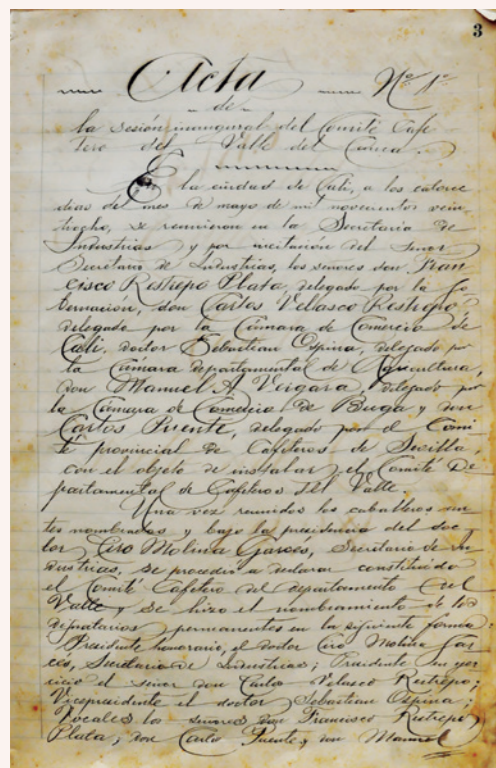 3
Acta Nº 1º
de
la sesión inaugural del Comité Cafe
tero del Valle del Cauca.
En la ciudad de Cali, a los catorce
dias del mes de mayo de mil novecientos vein-
tiocho, se reunieron en la Secretaría de
Industrias y por invitación del señor
Secretario de Industrias, los señores don Fran
cisco Restrepo Plata, delegado por la Go
bernación, don Carlos Velasco Restrepo,
delegado por la Cámara de Comercio de
Cali, doctor Sebastian Ospina, delegado por
la Cámara departamental de Agricultura,
don Manuel A. Vergara, delegado por
la Cámara de Comercio de Buga y don
Carlos Puente, delegado por el Comi
té provincial de Cafeteros de Sevilla,
con el objeto de instalar el Comité De
partamental de Cafeteros del Valle.
Una vez reunidos los caballeros an
tes nombrados y bajo la presidencia del doc
tor Ciro Molina Garcés, Secretario de In
dustrias, se procedió a declarar constituído
el Comité Cafetero del departamento del
Valle y se hizo el nombramiento de los
dignatarios permanentes en la siguiente forma:
Presidente honorario, el doctor Ciro Molina Gar
cés, Secretario de Industrias; Presidente en ejer
cicio el señor don Carlos Velasco Restrepo;
Vicepresidente el doctor Sebastian Ospina;
Vocales los señores don Francisco Restrepo
Plata, don Carlos Puente y don Manuel